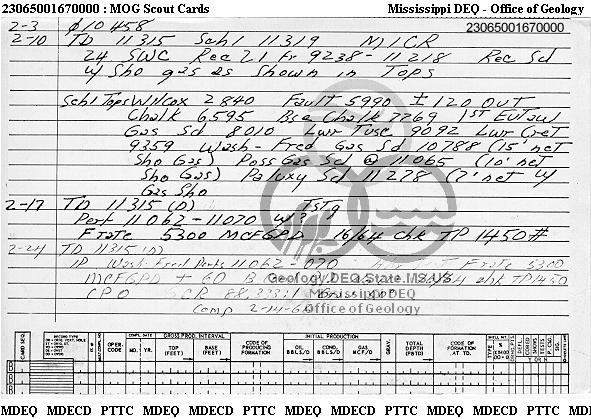 23065001670000 : MOG Scout Cards Mississippi DEQ - Office of Geology
2-3 Ø10458 23065001670000
2-10 TD 11315 Schl 11319 MICR
24 SWC Rec 21 Fr 9238-11218 Rec Sd
w/ Sho gas as Shown in Tops
Schl Tops Wilcox 2840 Fault 5990 ± 120 out
Chalk 6595 Bse Chalk 7269 1ST Eutaw
Gas Sd 8010 Lwr Tusc 9092 Lwr Cret
9359 Wash-Fred Gas Sd 10788 (15' net
Sho Gas) Poss Gas Sd @ 11065 (10' net
Sho Gas) Paluxy Sd 11278 (7' net w/
Gas Sho
2-17 TD 11315 (D) Tstg
Perf 11062-11070 w/
F rate 5300 MCFGPD 16/64 chk TP 1450#
2-24 TD 11315 (D)
IP Wash-Fred Perfs 11062-070 F rate 5300
MCFGPD + 60 B chk TP 1450
CPO
Comp 2-14-
Geology.DEQ.State.MS.US
Mississippi DEQ
Office of Geology
CARD SEQ. RECORD TYPE OPER-CODE COMPL. DATE MO. YR. GROSS PROD. INTERVAL TOP (FEET) BASE (FEET) CODE OF PRODUCING FORMATION INITIAL PRODUCTION OIL BBLS/D COND. BBLS/D GAS MCF/D GRAV. TOTAL DEPTH (PBTD) CODE OF FORMATION AT TD. DEFL. CORED SHOWS TESTS P. CSG SIG.
MDEQ MDECD PTTC MDEQ MDECD PTTC MDEQ MDECD PTTC MDEQ MDECD PTTC MD